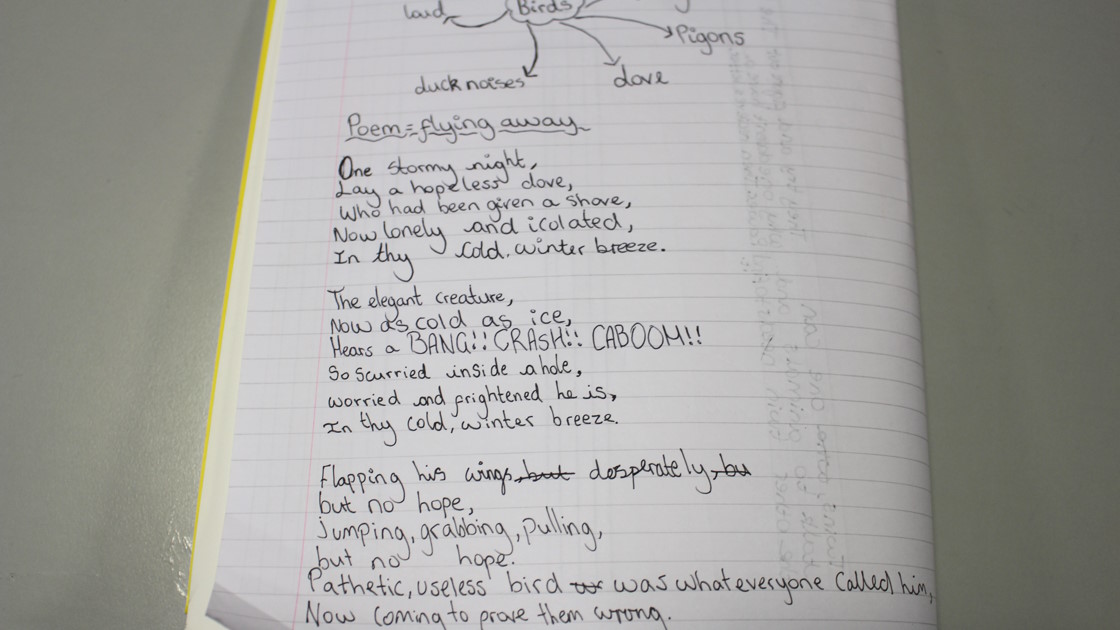 loud
Birds
Pigons
duck noises
dove
Poem = flying away
One stormy night,
Lay a hopeless dove,
Who had been given a shove,
Now lonely and icolated,
In thy cold, winter breeze.
The elegant creature,
Now as cold as ice,
Hears a BANG!! CRASH!! CABOOM!!
So scurried inside a hole,
worried and frightened he is,
In thy cold, winter breeze.
Flapping his wings, but desperately, bu
but no hope,
jumping, grabbing, pulling,
but no hope.
Pathetic, useless bird was what everyone called him,
Now coming to prove them wrong.